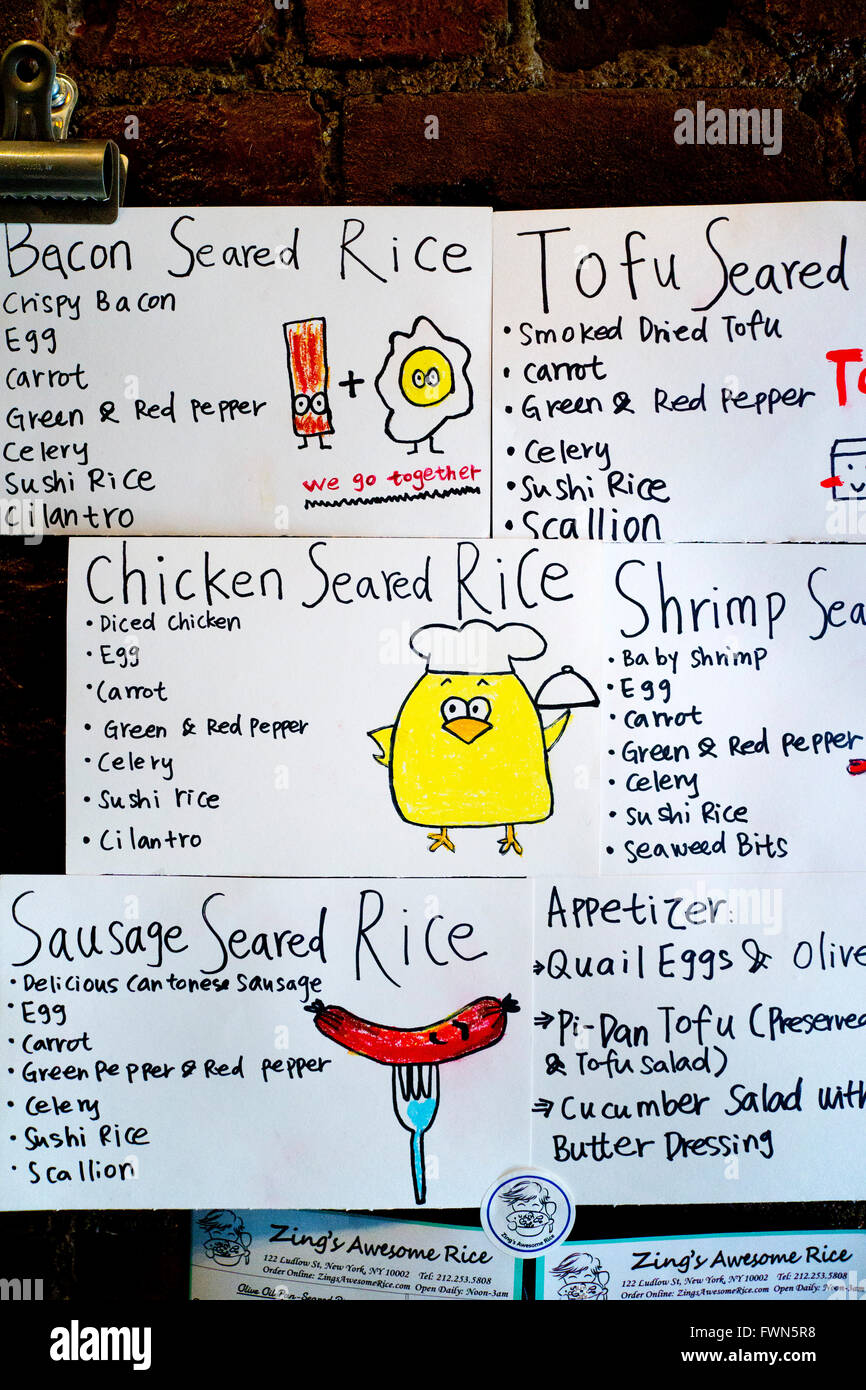 Bacon Seared Rice
Crispy Bacon
Egg
Carrot
Green & Red Pepper
Celery
Sushi Rice
Cilantro
+
we go together
Tofu Seared
• Smoked Dried Tofu
• Carrot
• Green & Red Pepper
• Celery
• Sushi Rice
• Scallion
Chicken Seared Rice
• Diced chicken
• Egg
• Carrot
• Green & Red Pepper
• Celery
• Sushi rice
• Cilantro
Shrimp Sea
• Baby Shrimp
• Egg
• Carrot
• Green & Red Pepper
• Celery
• Sushi Rice
• Seaweed Bits
Sausage Seared Rice
• Delicious Cantonese Sausage
• Egg
• Carrot
• Green Pepper & Red pepper
• Celery
• Sushi Rice
• Scallion
Appetizer:
Quail Eggs & Olive
Pi-Dan Tofu (Preserved
& Tofu Salad)
Cucumber Salad with
Butter Dressing
Zing's Awesome Rice
Zing's Awesome Rice
122 Ludlow St, New York, NY 10002 Tel: 212.253.5808
Order Online: ZingsAwesomeRice.com Open Daily: Noon-3am
Zing's Awesome Rice
122 Ludlow St, New York, NY 10002 Tel: 212.253.5808
Order Online: ZingsAwesomeRice.com Open Daily: Noon-3am
alamy
Image ID: FWN5R8
www.alamy.com